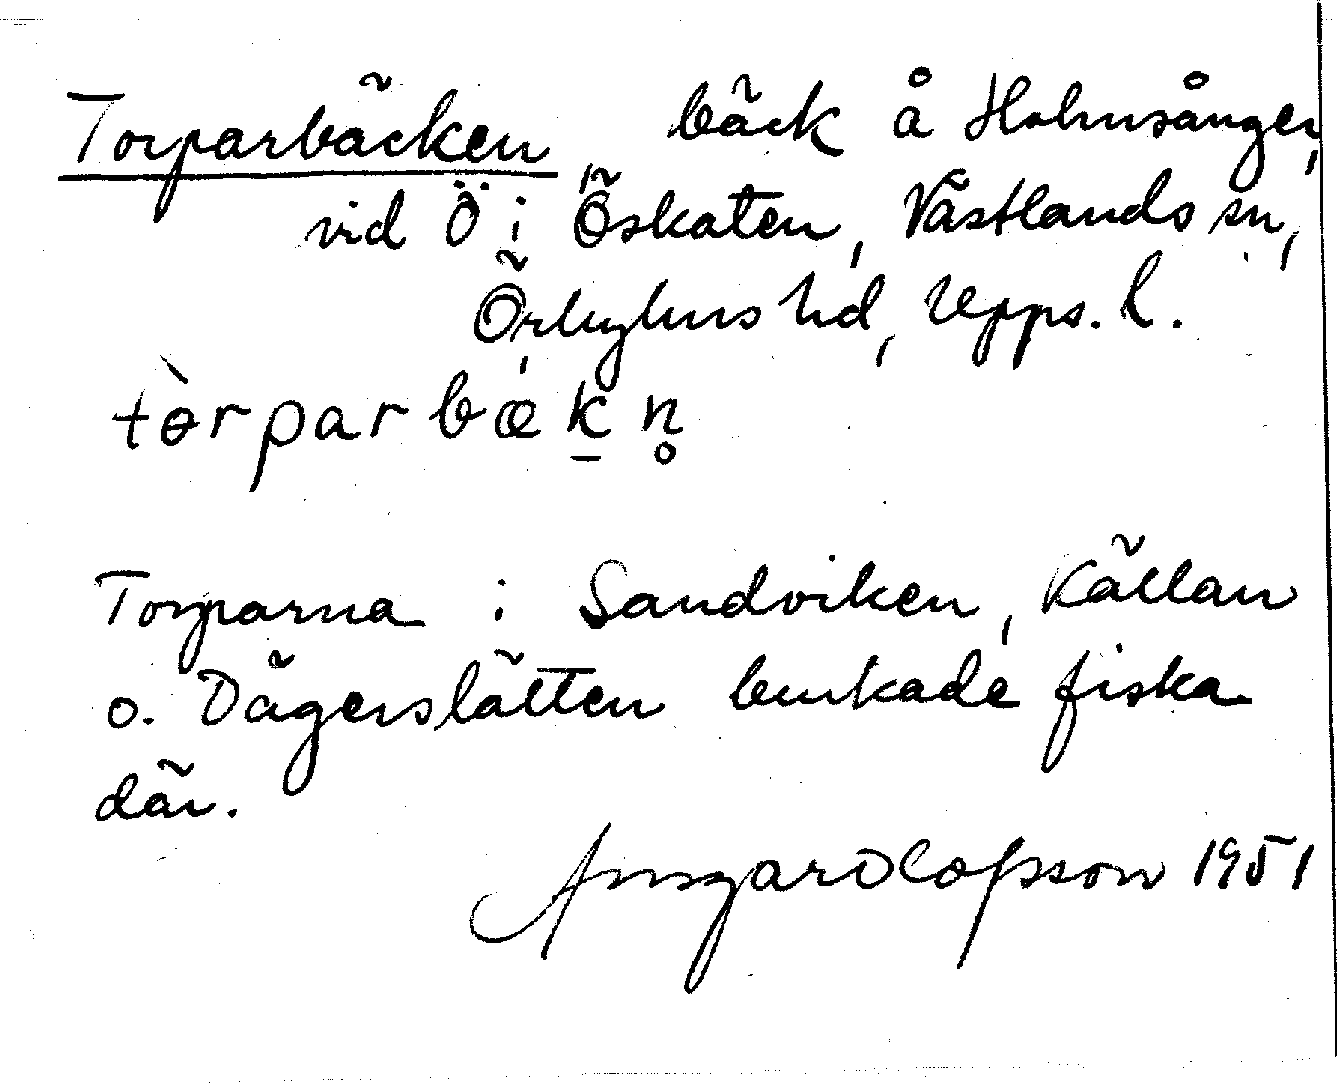 Torparbäcken bäck å Holmsånger,
vid Ö i Öskaten, Västlands sn,
Örbyhus hd, Upps. l.
tòrparbǽk̠n̥
Torparna i Sandviken, Källan
o. Dägerslätten brukade fiska
där.
Ansgar Olofsson 1951